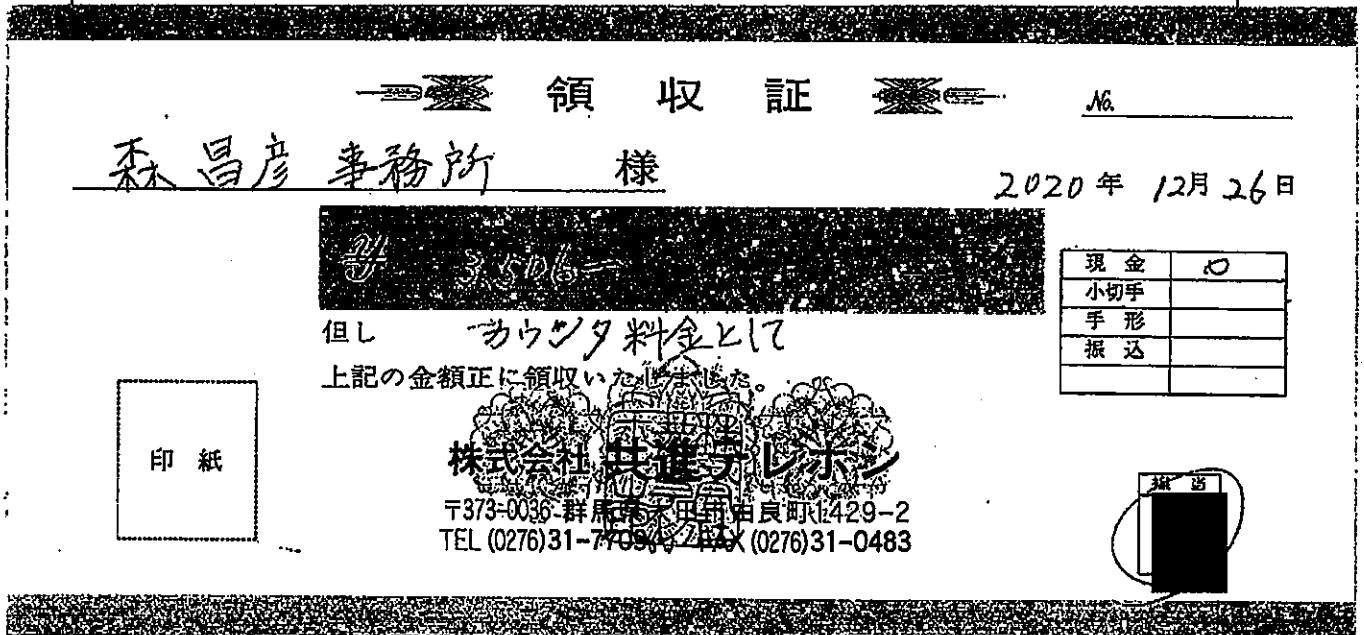 領収証
No.
森昌彦事務所 様
2020年 12月 26日
¥ 3,506-
現金 ○
小切手
手形
振込
但し カウンタ料金として
上記の金額正に領収いたしました。
印紙
株式会社 共進テレホン
〒373-0036 群馬県太田市由良町1429-2
TEL (0276)31-7709 FAX (0276)31-0483
担当